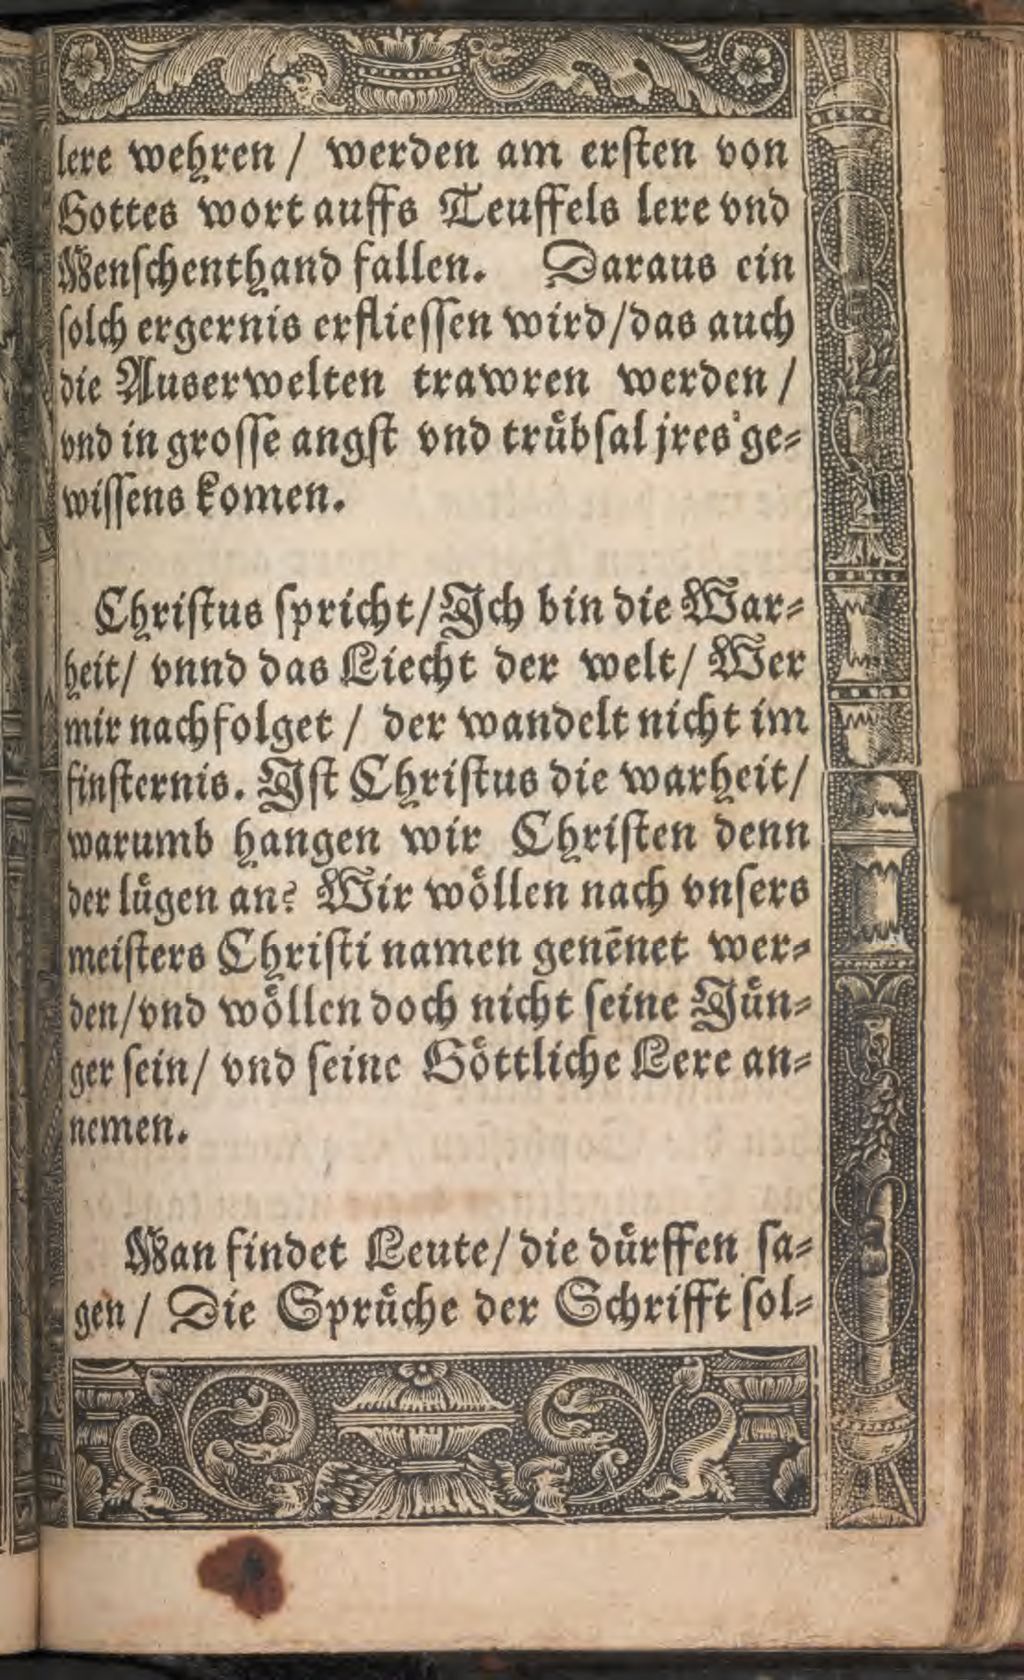 lere wehren / werden am ersten von
Gottes wort auffs Teuffels lere vnd
Menschenthand fallen. Daraus ein
solch ergernis erfliessen wird/das auch
die Auserwelten trawren werden /
vnd in grosse angst vnd trůbsal jres ge-
wissens komen.
Christus spricht/Ich bin die War-
heit/ vnnd das Liecht der welt/ Wer
mir nachfolget / der wandelt nicht im
finsternis. Ist Christus die warheit/
warumb hangen wir Christen denn
der lůgen an? Wir woͤllen nach vnsers
meisters Christi namen genēnet wer-
den/vnd woͤllen doch nicht seine Jůn-
ger sein/ vnd seine Goͤttliche Lere an-
nemen.
Man findet Leute/ die důrffen sa-
gen / Die Sprůche der Schrifft sol-